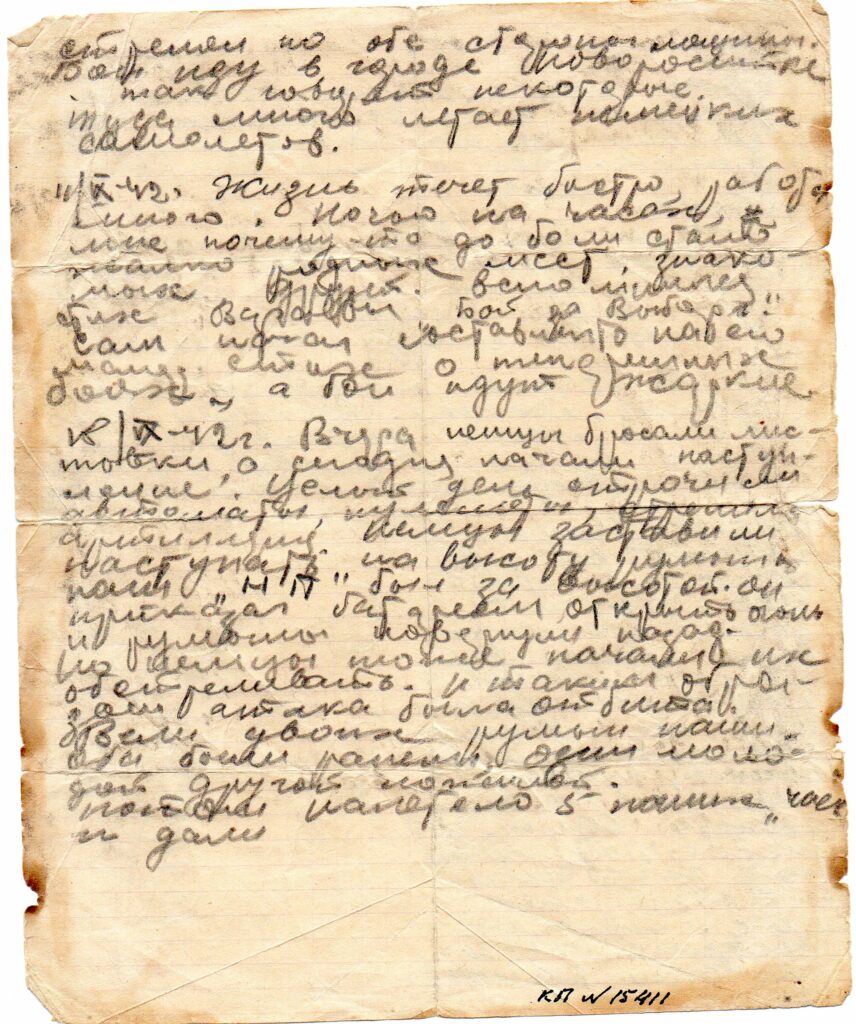 стреляем по обе стороны машины.
Бои иду в городе Новороссийске
так говорят некоторые.
много летает немецких
самолетов.
11/IX-42. Жизнь течет быстро, работы
много. Ночью на часах,
мне почему-то до боли стало
жалко родных мест, знако-
мых, друзей. вспомнил
стих "Бой за Выборг".
Сам начал составлять
стих о теперешних
боях, а бои идут жаркие.
/IX-42г. Вчера немцы бросали лис-
товки о сегодня начали наступ-
ление. Целый день строчили
автоматы, пулеметы, стреляла
артиллерия, немцы заставили
наступать на высоту румын
наш "НП" был за высотой. он
приказал батареям открыть огонь
и румыны повернули назад.
но немцы тоже начали их
обстреливать. И таким обра-
зом атака была отбита.
Вели двоих румын наши
оба были ранены, один моло-
дой другой пожилой.
потом налетело 5 наших "чаек
и дали
КП № 15411